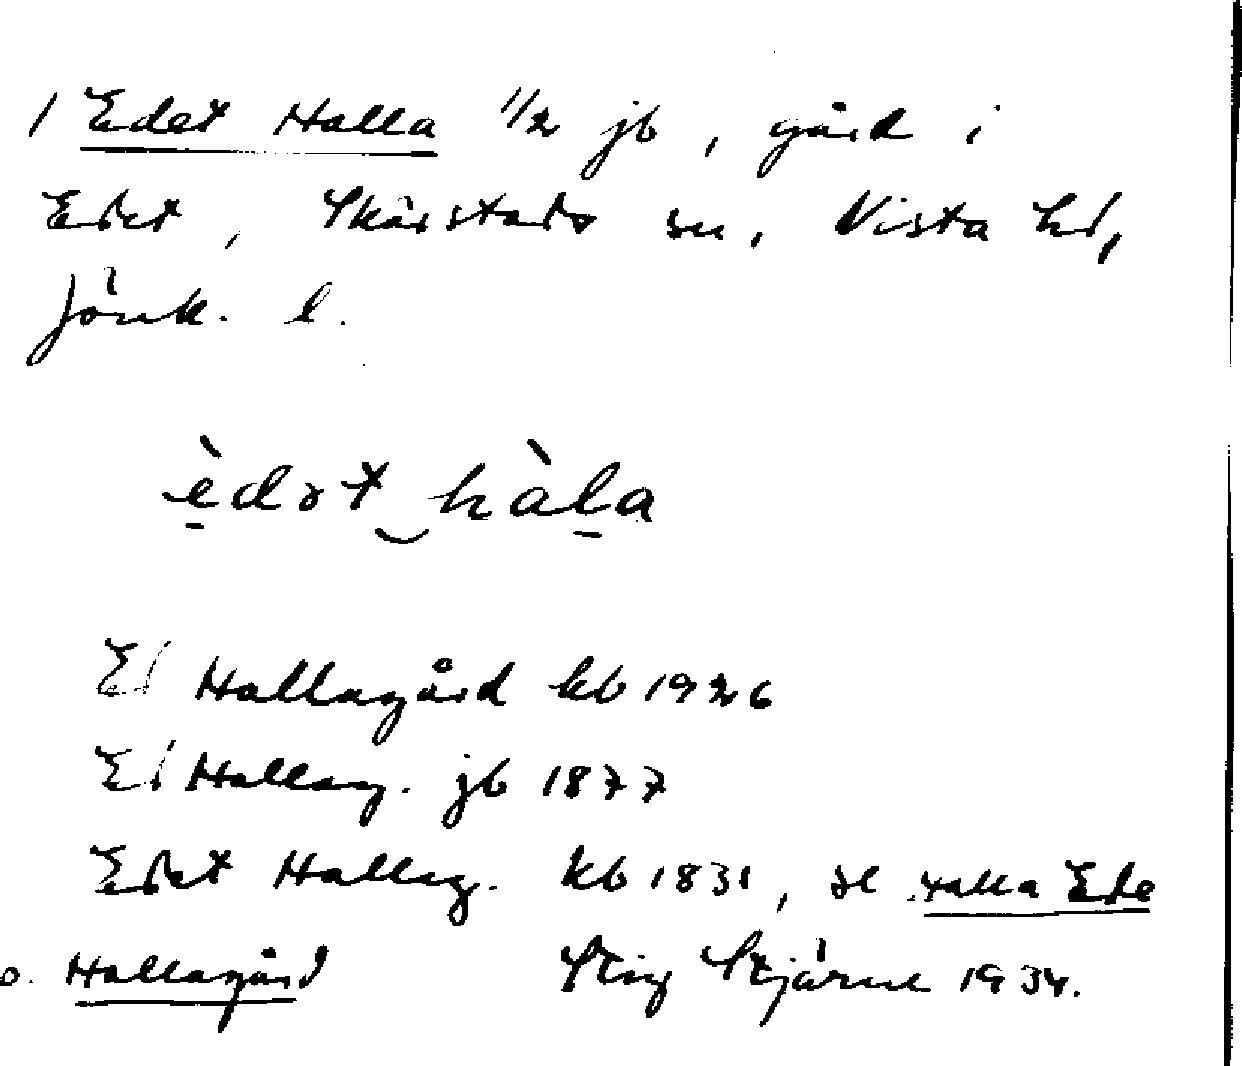 1 Edet Halla 1/2 jb, gård i
Edet, Skärstads sn, Vista hd,
Jönk. l.
èdət‿hàla
Ed Hallagård kb 1926
Ed Hallag. jb 1877
Edet Hallag. kb 1831, se Halla Ede
o. Hallagård Stig Stjärne 1934.